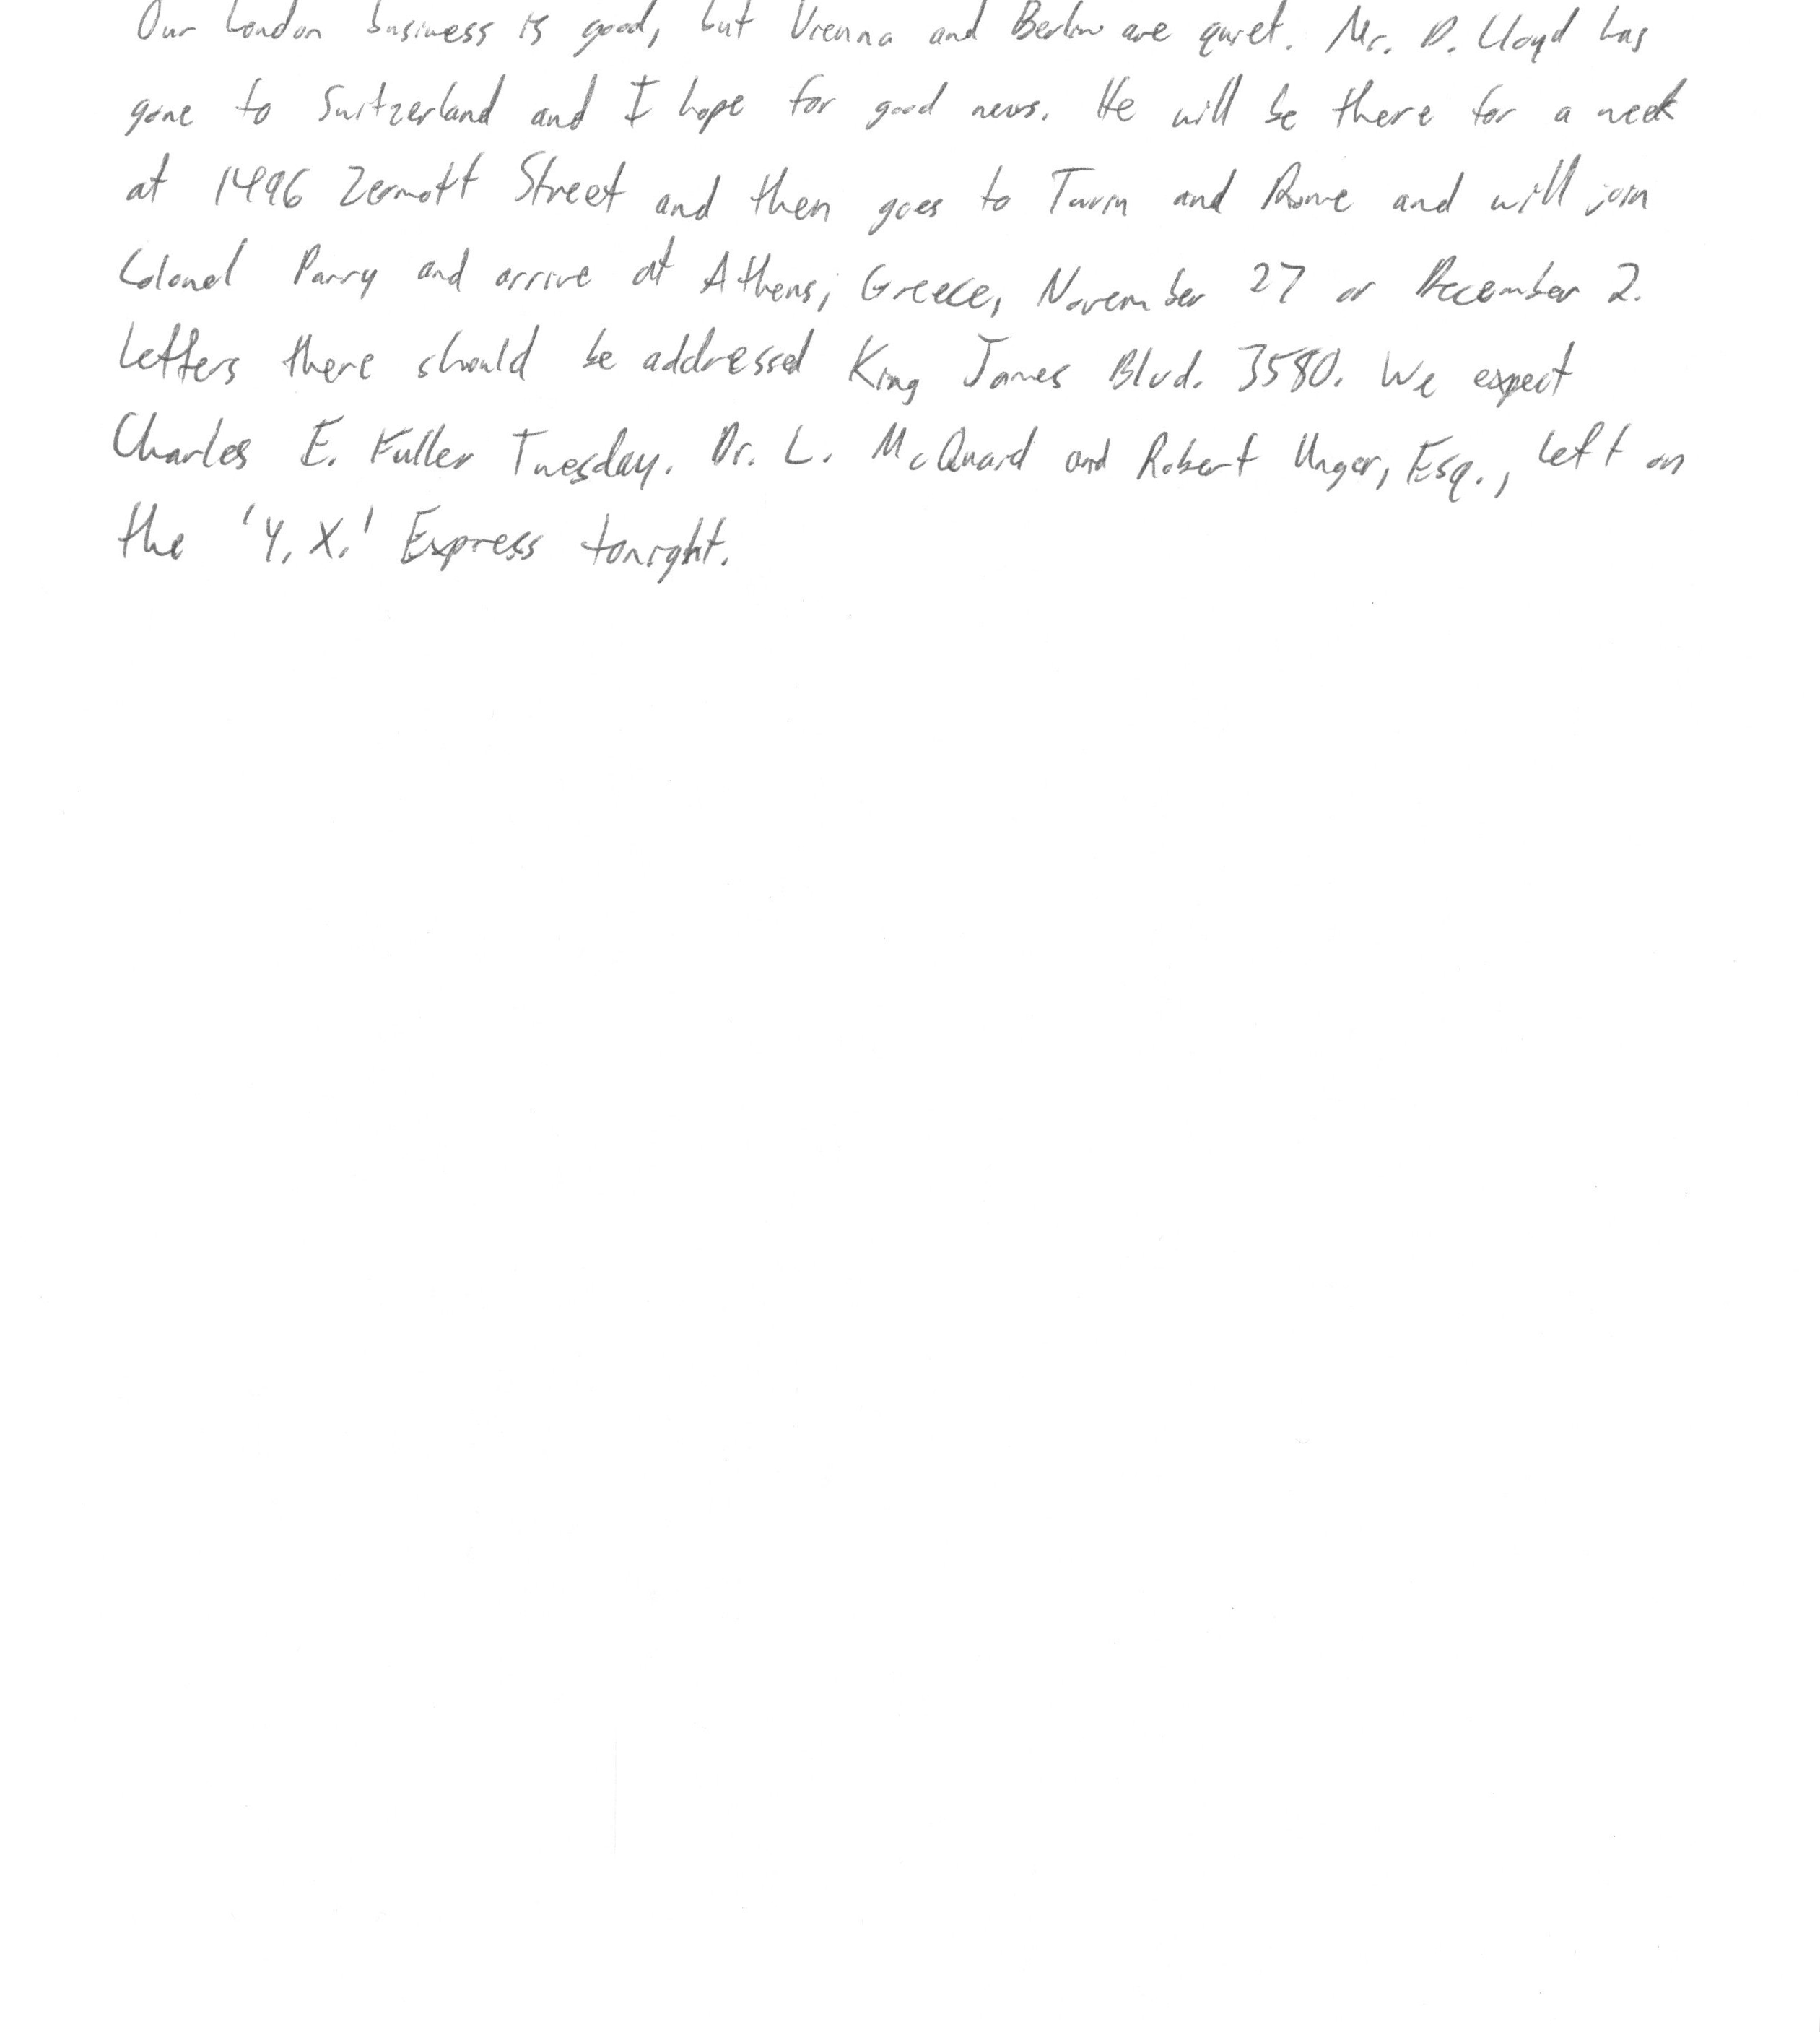 Our London business is good, but Vienna and Berlin are quiet. Mr. D. Lloyd has
gone to Switzerland and I hope for good news. He will be there for a week
at 1496 Zermott Street and then goes to Turin and Rome and will join
Colonel Parry and arrive at Athens, Greece, November 27 or December 2.
Letters there should be addressed King James Blvd. 3580. We expect
Charles E. Fuller Tuesday. Dr. L. McQuaid and Robert Unger, Esq., left on
the 'Y. X.' Express tonight.